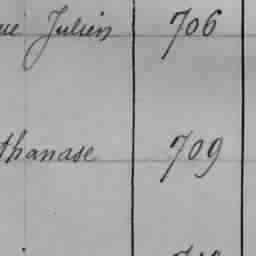 ue Julien 706
thanase 709